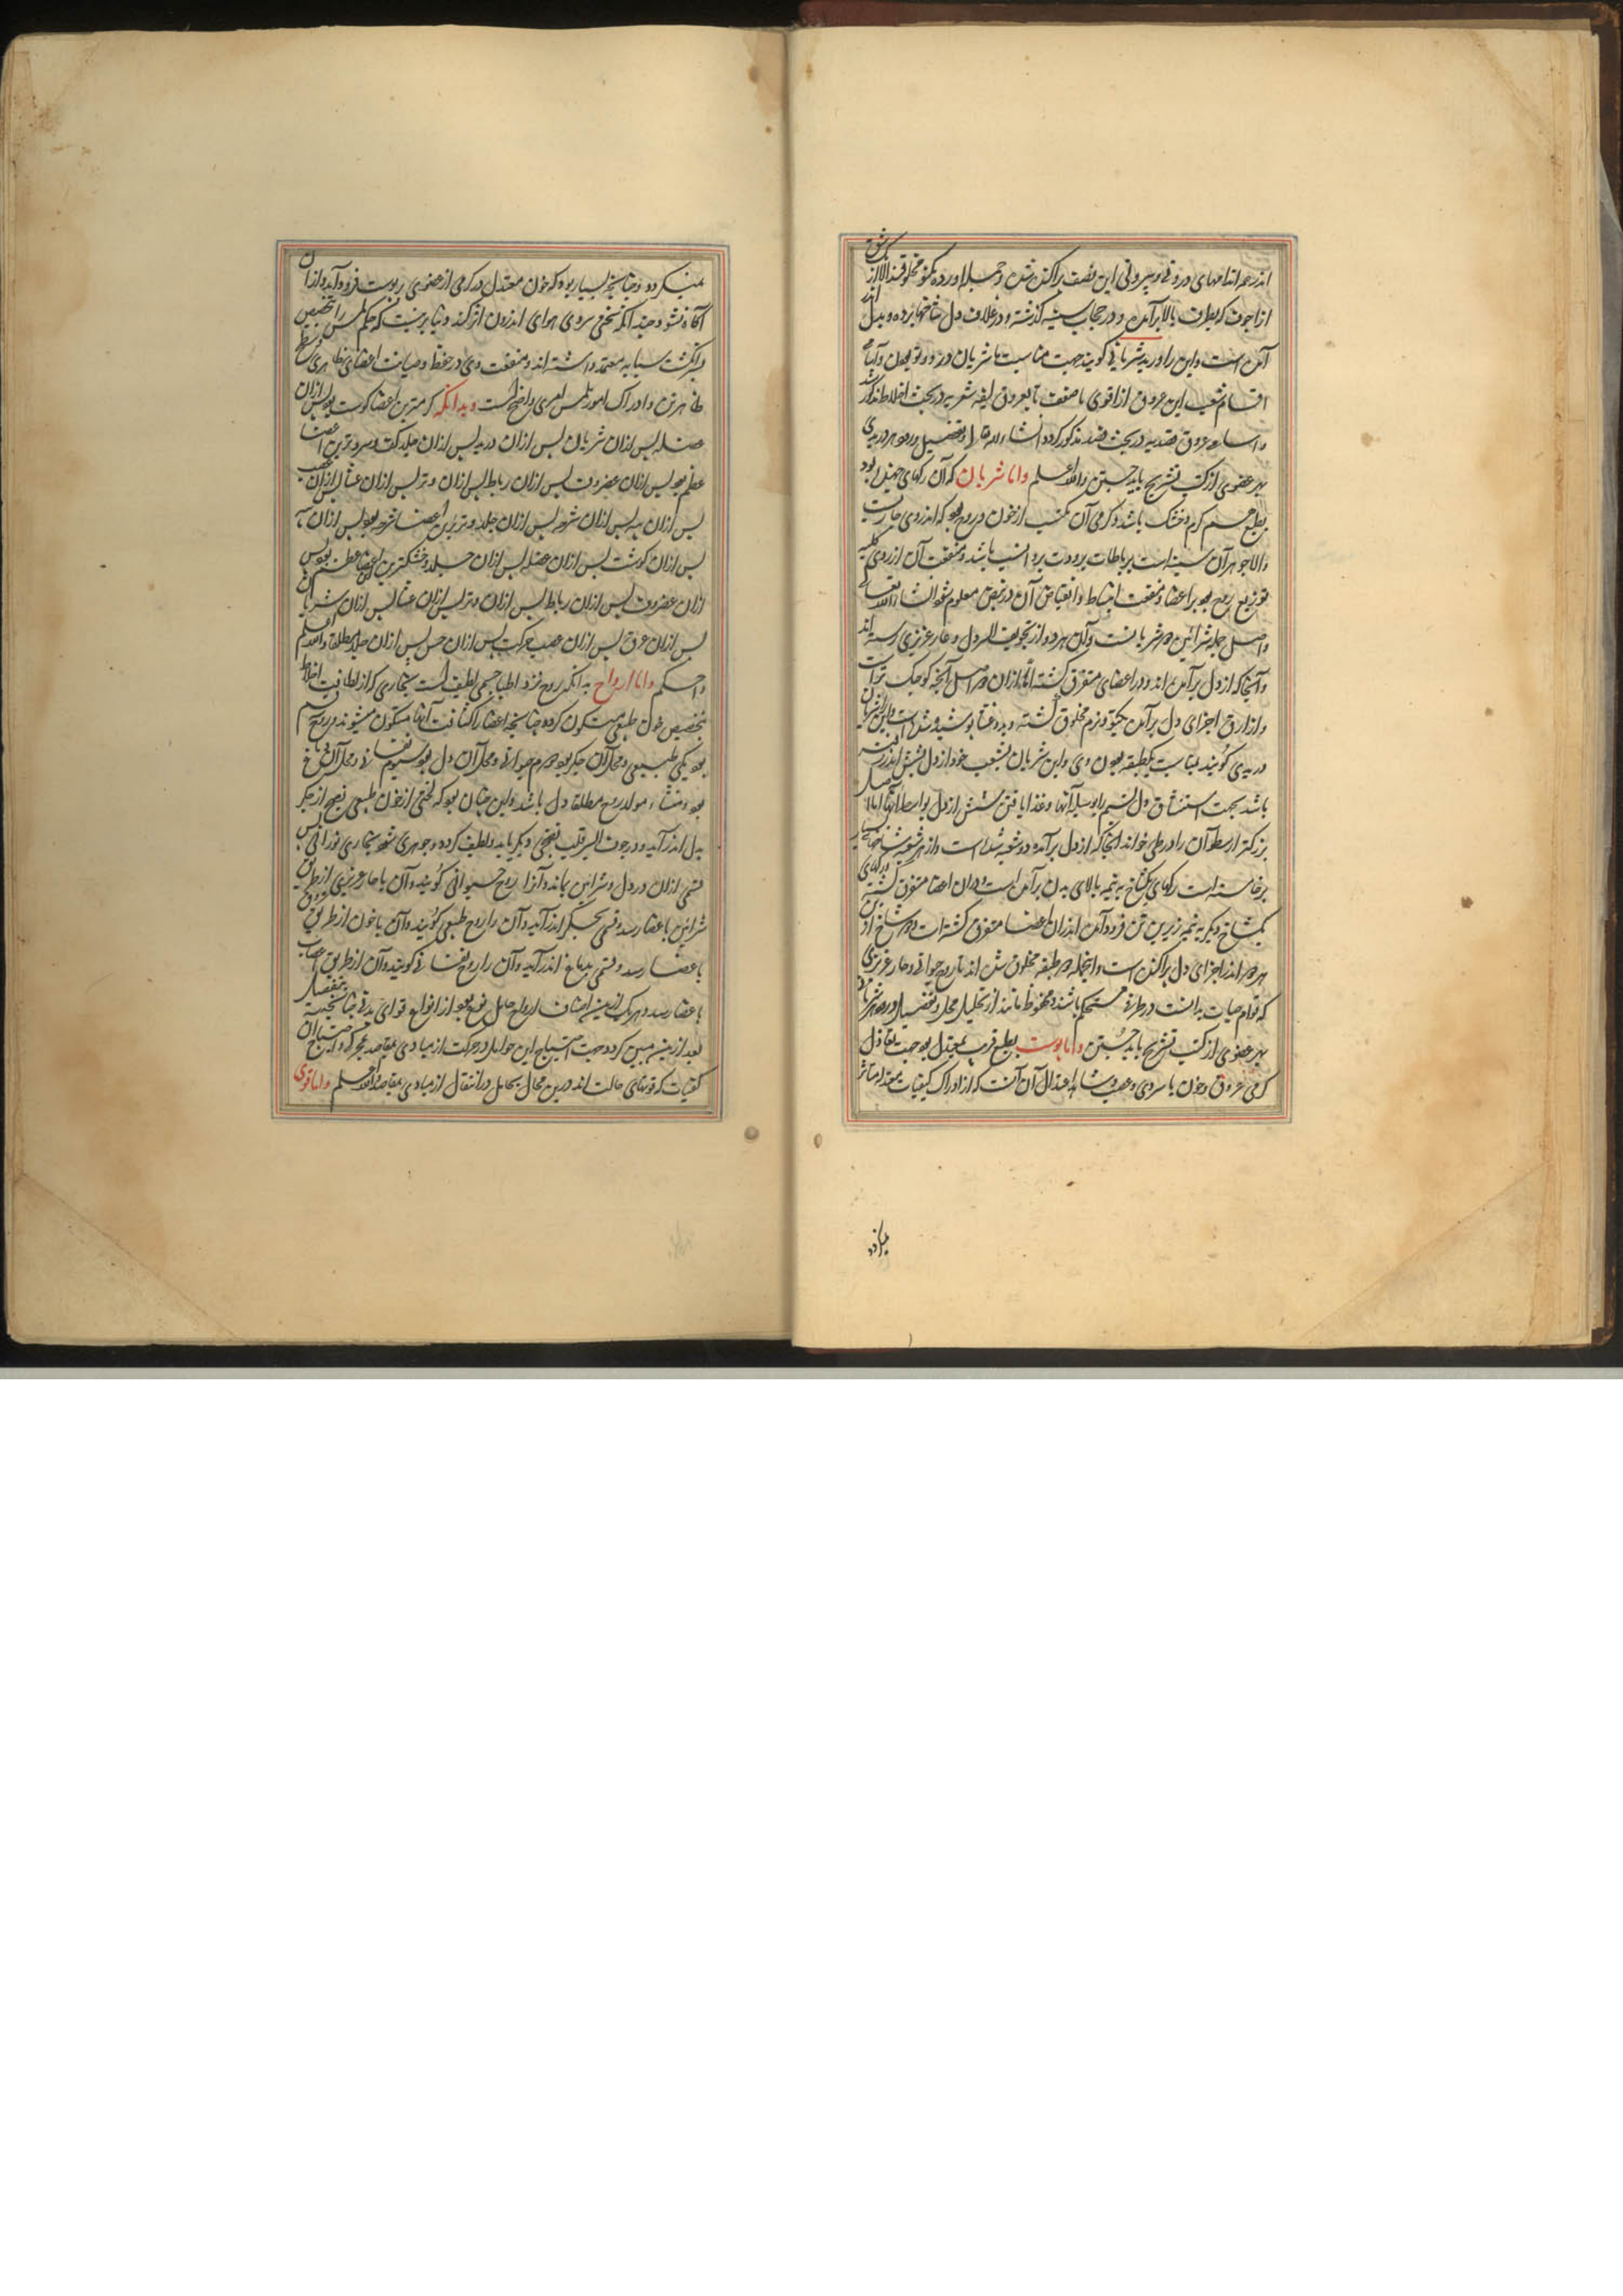 اندر همه اندامهای درونی و بیرونی این نصف پراکنده شده و جمله اورده یکتو مخلوقند الا
از اجوف که بطرف بالا برآمده و در حجاب سینه گذشته و در غلاف دل شاخها برده و بدل
آمده است و این را ورید شریانی گویند جهت مناسبت با شریان در دو تو بودن و اما
اقسام شعب این عروق از اقوی تا ضعف تا بعروق لیفه شعریه در بحث اخلاط مذکور شد
و اسامی عروق فصدیه در بحث فصد مذکور گردد انشاء الله تعالی و تفصیل
هر عضوی از کتب تشریح باید جستن والله اعلم واما شریان که آن رگهای جهنده بود
بطبع گرم و خشک باشد و گرمی آن مکتسب از خون و روح بود که اندروی جاریست
والا جوهر آن است برباطات برودت بروی انسب باشد و منفعت آن از روی کلیه
توزیع روح بود بر اعضا و منفعت انبساط و انقباض آن در نبض معلوم شود انشاء الله تعالی
و اصل جمله شرائین دو شریانست و آن هر دو از تجویف ایسر دل و حار غریزی رسته اند
و آنجا که از دل برآمده اند و در اعضای متفرق گشته اما ازان دو اصل آنچه کوچک تر است
و از ارق اجزای دل برآمده یکتو و نرم مخلوق گشته و بدو غشا پوشیده شده است و این را شریان
وریدی گویند بمناسبت یکطبقه بودن وی و این شریان بشعب خود از دل بشش اندر
باشد بجهت استنشاق دل نسیم را بوسیله آنها و غذا یافتن شش از دل بواسطه آنها اما اصل
بزرکتر ارسطو آن را اورطی خواند آنجا که از دل برآمده دو شعبه شده است و از هر شعبه شاخهای
برخاسته است رگهای یکشاخ به نیمه بالای بدن برآمده است و دران اعضا متفرق گشته و رگهای
یکشاخ دیگر به نیمه زیرین تن فرود آمده اندران اعضا متفرق گشته است و دو شاخ از
هر دو اندر اجزای دل پراکنده است و اینجمله دو طبقه مخلوق شده اند تا روح حیوانی و حار غریزی
که قوام حیات بدانست در ظرفی مستحکم باشند و محفوظ مانند از تحلیل محلل و تفصیل ورود هر شریان
بهر عضوی از کتب تشریح باید جستن واما پوست بطبع قریب بمعتدل بود جهت تعادل
گرمی عروق و خون با سردی و عصب و شاهد اعتدال آن آنست که از ادراک کیفیات معتدله متاثر
نمیگردد و چنانچه بسیار بود که خون معتدل در گرمی از عضوی بر پوست فرود آید و ازان
آگاه نشود و چند آنکه سختی سردی هوای اندرون اثر کند و بنا برینست که حکم لمس را تخصیص
بر انگشت سبابه معتمد داشته اند و منفعت وی در حفظ و صیانت اعضای ظاهری
ظاهر تن و ادراک امور لمس امری واضح است وبدانکه گرمترین اعضا گوشت بود پس ازان
عضله پس ازان شریان پس ازان ورید پس ازان جلد کف و سردترین اعضا
عظم بود پس ازان غضروف پس ازان رباط پس ازان وتر پس ازان غشا پس ازان عصب
پس ازان پیه پس ازان شحم پس ازان جلد و ترترین اعضا شحم بود پس ازان پیه
پس ازان گوشت پس ازان عضله پس ازان جلد و خشکترین اعضا عظم بود پس
ازان غضروف پس ازان رباط پس ازان وتر پس ازان غشا پس ازان شریان
پس ازان عرق پس ازان عصب حرکت پس ازان حس پس ازان جلد مطلقا والله اعلم
واحکم واما ارواح بدانکه روح نزد اطبا جسمی لطیف است بخاری که از لطافت اخلاط
بتخصیص خون طبیعی متکون گردد چنانچه اعضا از کثافت آنها متکون میشوند و روح سه قسم
بود یکی طبیعی و محل آن جگر بود دوم حیوانی و محل آن دل بود سیوم نفسانی و محل آن دماغ
بود و منشاء و مولد روح مطلقا دل باشد و این چنان بود که لختی از خون طبیعی نضج از جگر
بدل اندر آید و در جوف ایسر قلب نضجی دیگر یابد و لطیف گردد و جوهری شود بخاری نورانی پس
قسمی ازان در دل و شراین بماند و آنرا روح حیوانی گویند و آن با حار غریزی از طریق
شرائین باعضا رسد و قسمی بجگر اندر آید و آن را روح طبیعی گویند و آن با خون از طریق عروق
باعضا رسد و قسمی بدماغ اندر آید و آن را روح نفسانی گویند و آن از طریق اعصاب
باعضا رسد و هر یک ازین اصناف ارواح حامل نوعی بود از انواع قوای بدنی چنانچه
بعد ازین مبین گردد جهت احتیاج این حوامل در حرکت از مبادی بمقاصد
کیفیات که قوتهای حالت اند درین محال بحامل در انتقال از مبادی بمقاصد والله اعلم واما قوی